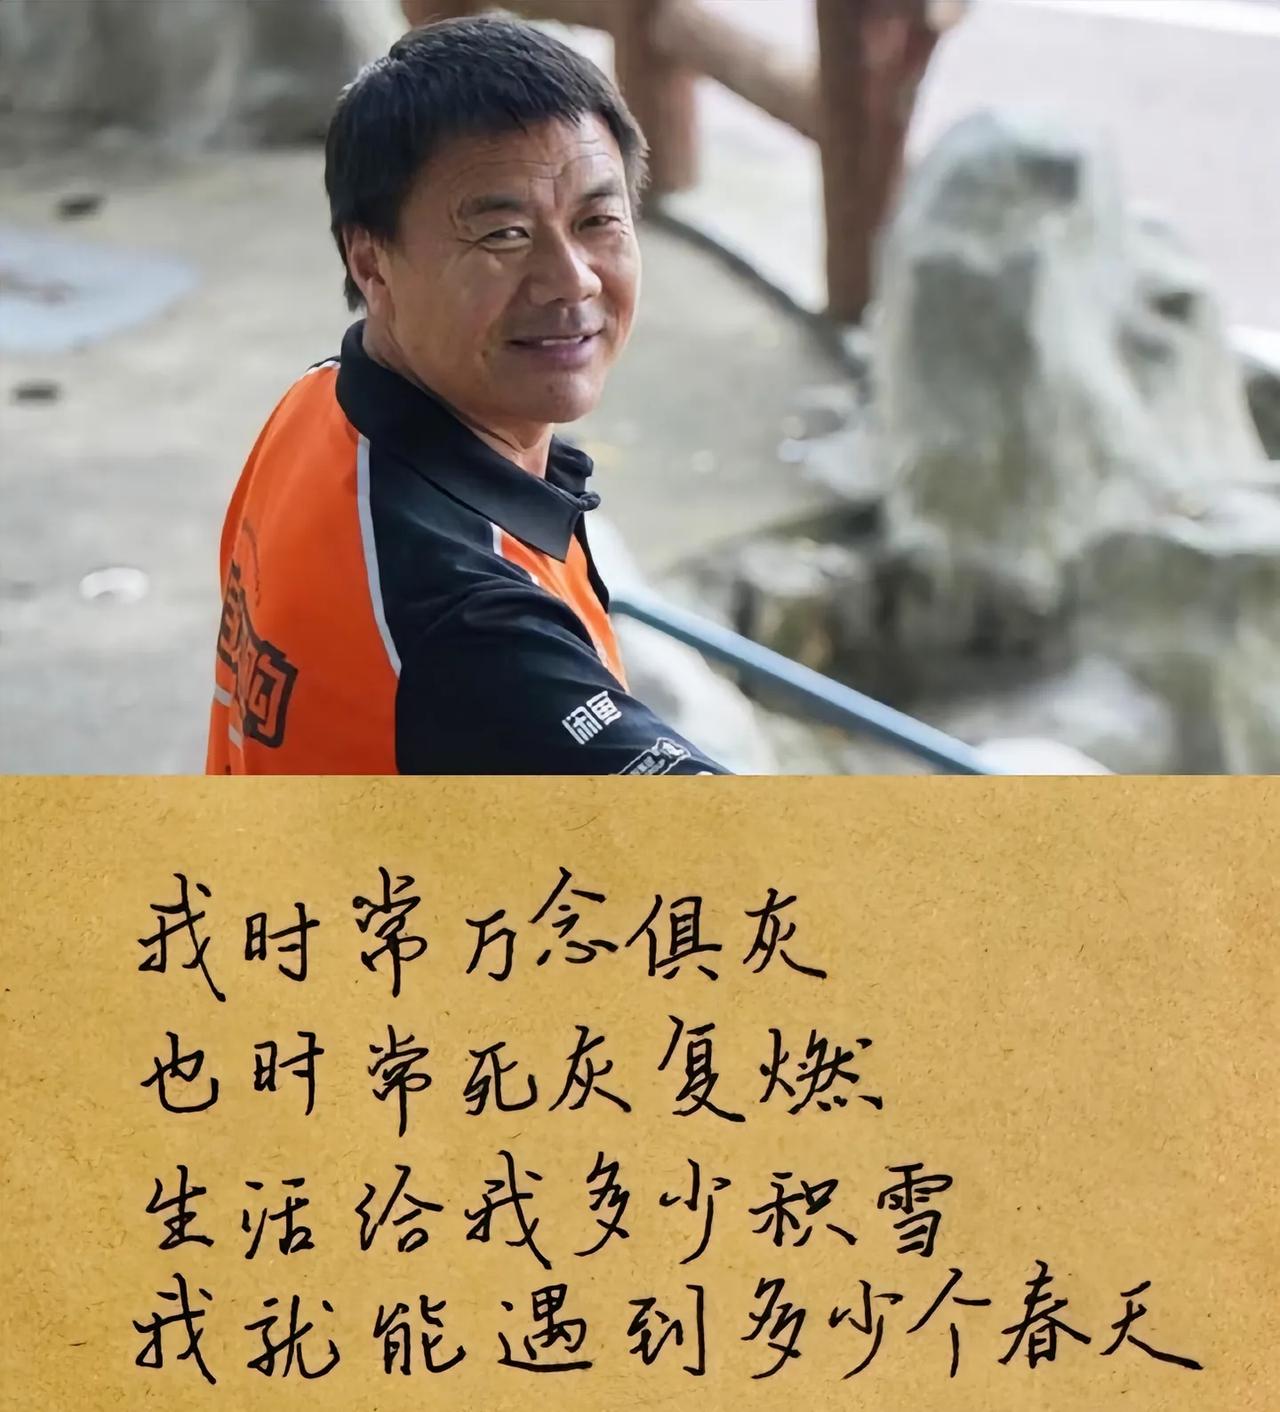 闲鱼
我时常万念俱灰
也时常死灰复燃
生活给我多少积雪
我就能遇到多少个春天